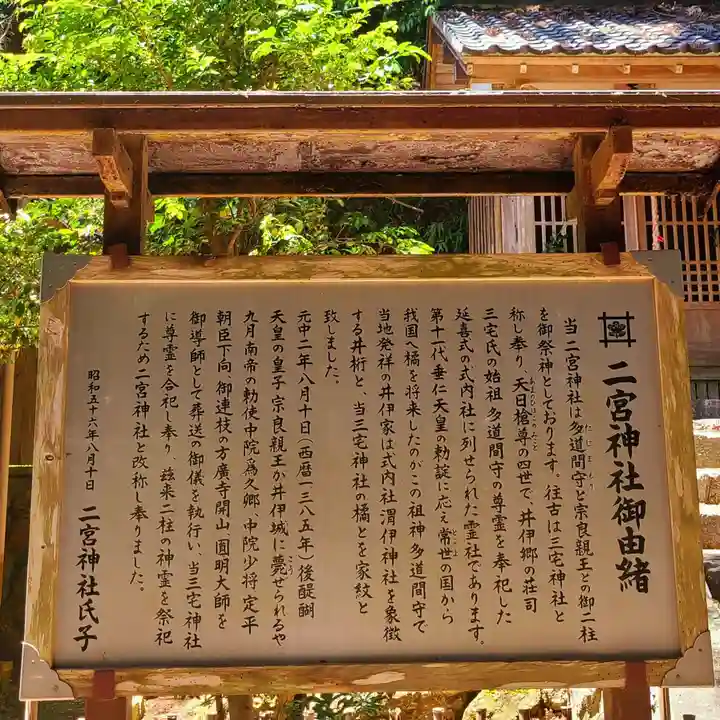 二宮神社御由緒
当 二宮神社は多道間守と宗良親王との御二柱
たじまもり
を御祭神としております。往古は三宅神社と
称し奉り、天日槍尊の四世で、井伊郷の荘司
あまのひぼこのみこと
三宅氏の始祖 多道間守の尊霊を奉祀した
延喜式の式内社に列せられた霊社であります。
第十一代 垂仁天皇の勅諚に応え 常世の国から
とこよ
我国へ橘を将来したのがこの祖神 多道間守で
当地発祥の井伊家は式内社 渭伊神社を象徴
する井桁と、当三宅神社の橘とを家紋と
致しました。
元中二年八月十日(西暦一三八五年)後醍醐
天皇の皇子 宗良親王が井伊城に薨せられるや
こう
九月南帝の勅使中院爲久卿、中院少将 定平
朝臣下向、御連枝の方廣寺開山 圓明大師を
御導師として葬送の御儀を執行い、当三宅神社
に尊霊を合祀し奉り、玆来二柱の神霊を祭祀
するため二宮神社と改称し奉りました。
昭和五十六年八月十日 二宮神社氏子